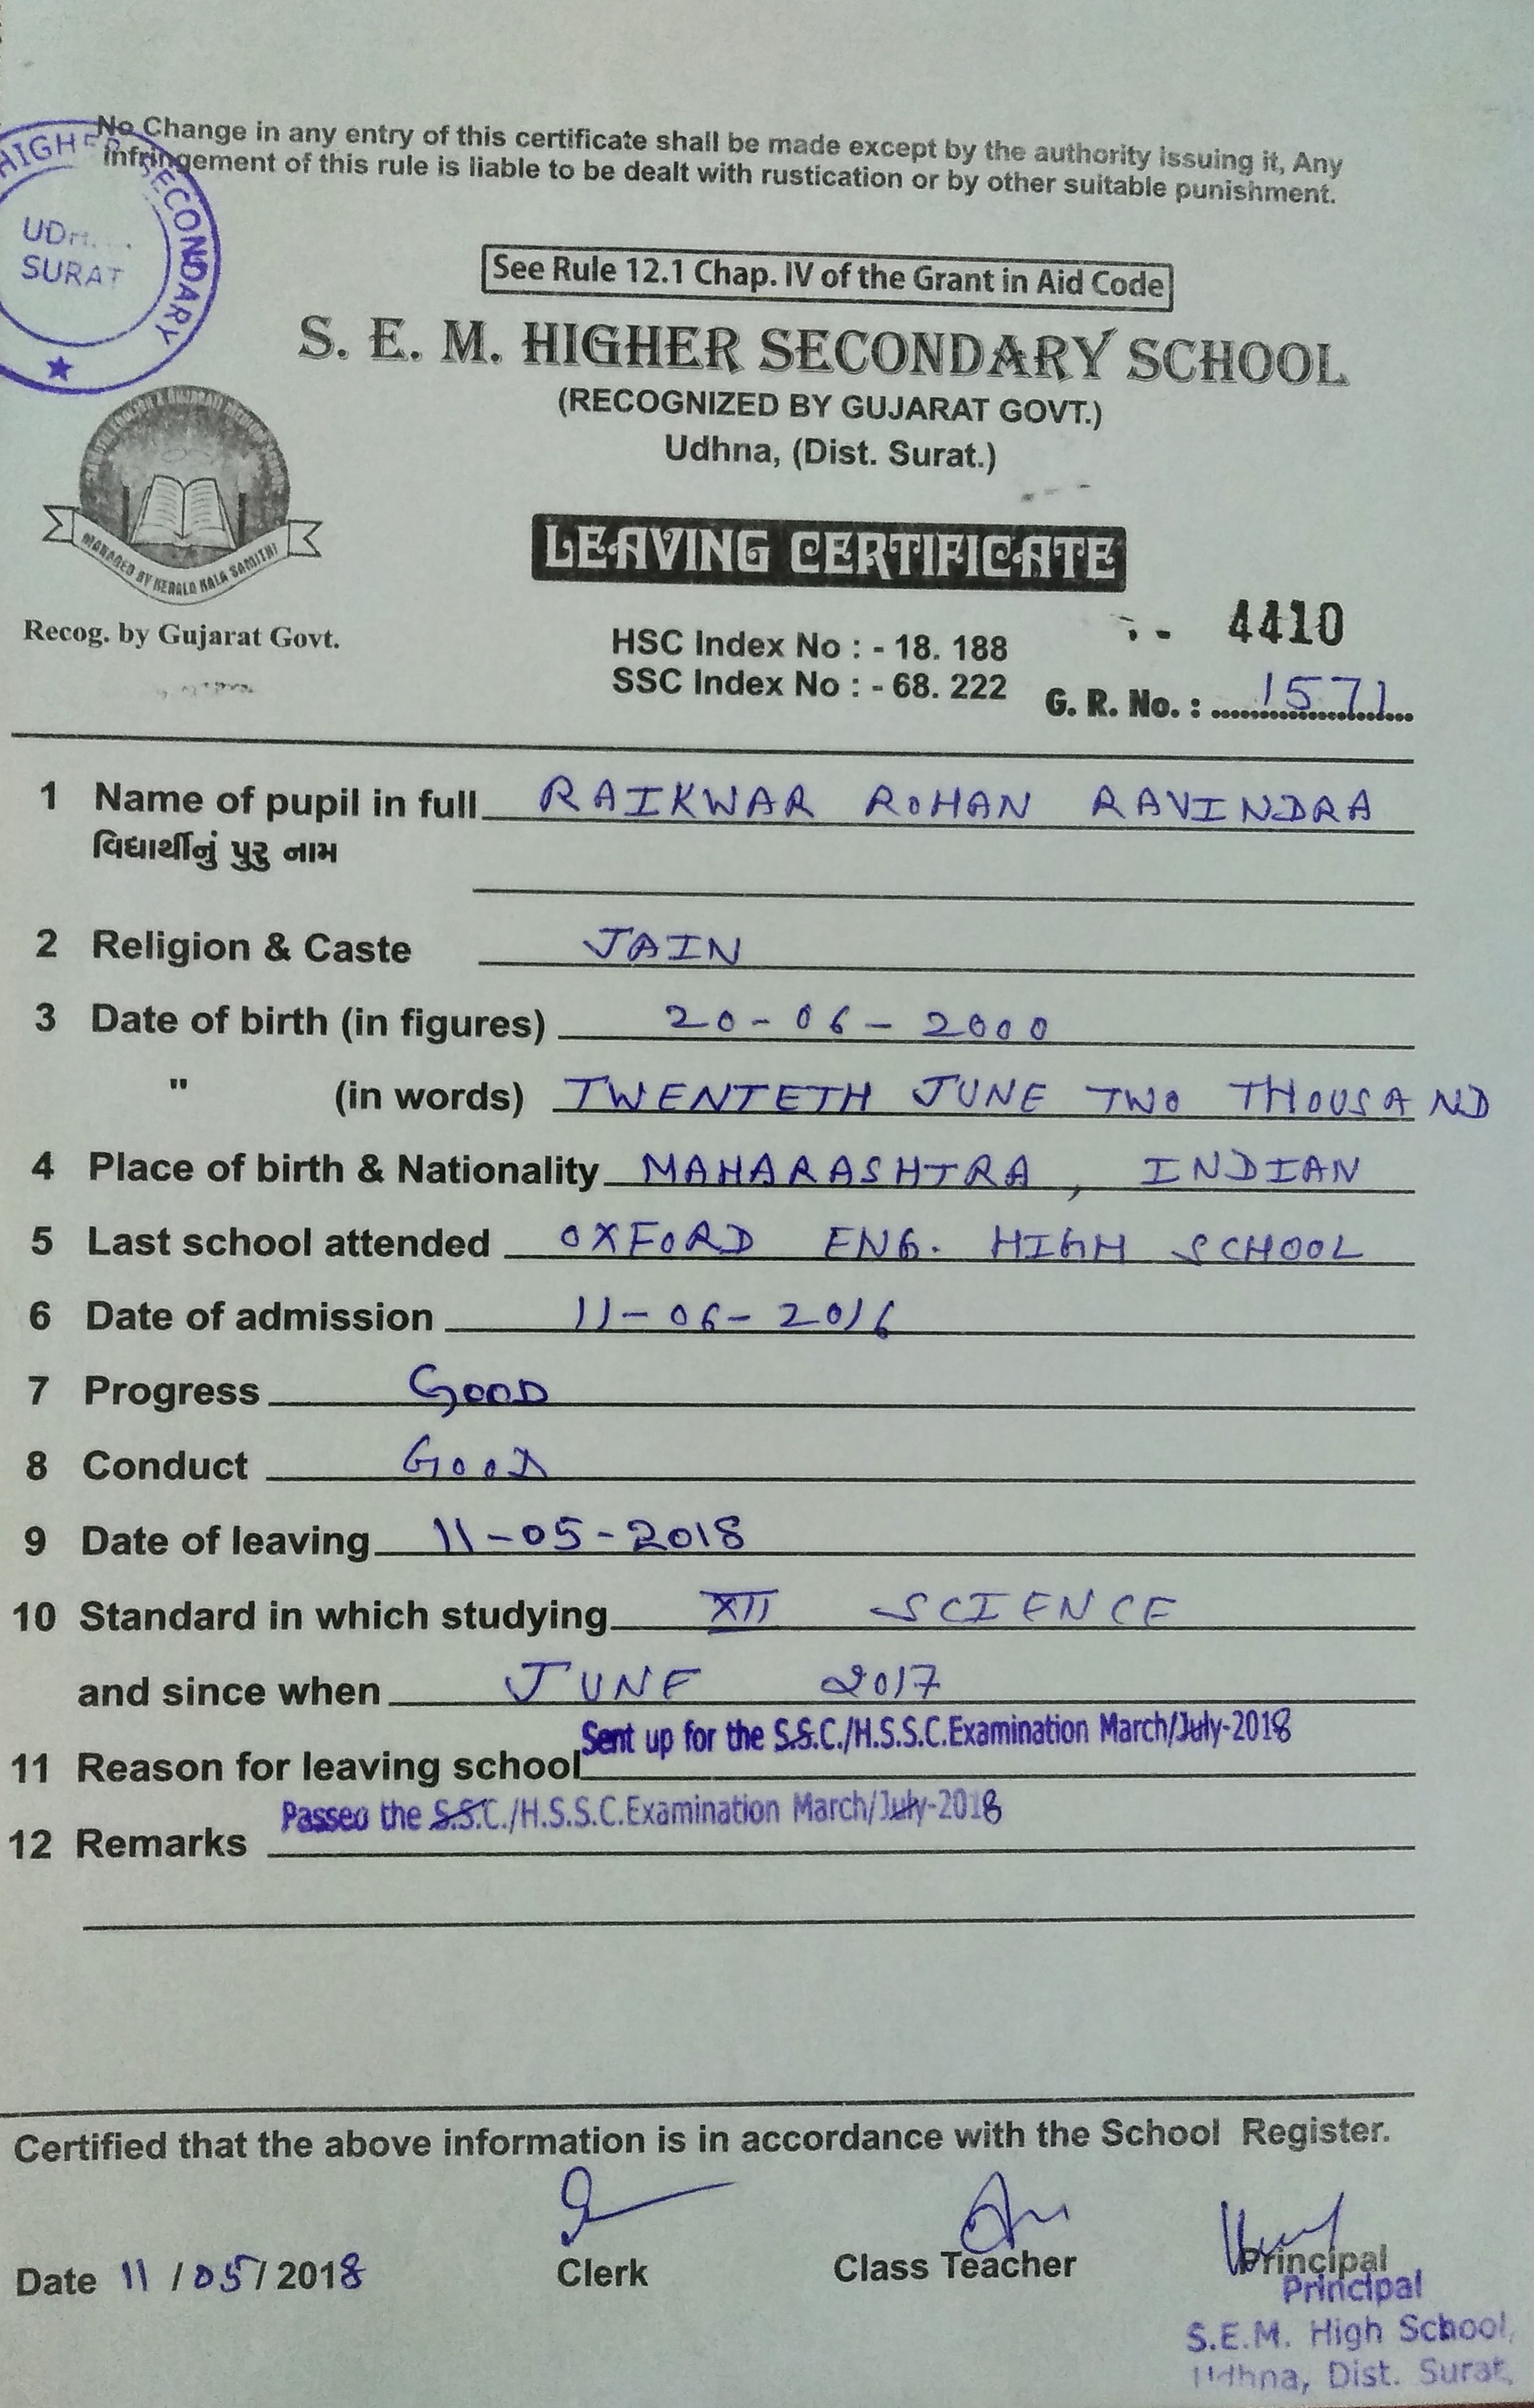 No Change in any entry of this certificate shall be made except by the authority issuing it, Any
infringement of this rule is liable to be dealt with rustication or by other suitable punishment.
HIGHER SECONDARY
SURAT
See Rule 12.1 Chap. IV of the Grant in Aid Code
S. E. M. HIGHER SECONDARY SCHOOL
(RECOGNIZED BY GUJARAT GOVT.)
Udhna, (Dist. Surat.)
MANAGED BY KERALA KALA SAMITHI
Recog. by Gujarat Govt.
LEAVING CERTIFICATE
4410
HSC Index No : - 18. 188
SSC Index No : - 68. 222
G. R. No. : 1571
1 Name of pupil in full RAIKWAR ROHAN RAVINDRA
વિદ્યાર્થીનું પુરુ નામ
2 Religion & Caste JAIN
3 Date of birth (in figures) 20-06-2000
" (in words) TWENTETH JUNE TWO THOUSAND
4 Place of birth & Nationality MAHARASHTRA, INDIAN
5 Last school attended OXFORD ENG. HIGH SCHOOL
6 Date of admission 11-06-2016
7 Progress GOOD
8 Conduct GOOD
9 Date of leaving 11-05-2018
10 Standard in which studying XII SCIENCE
and since when JUNE 2017
Sent up for the S.S.C./H.S.S.C.Examination March/July-2018
11 Reason for leaving school
Passed the S.S.C./H.S.S.C.Examination March/July-2018
12 Remarks
Certified that the above information is in accordance with the School Register.
Date 11/05/2018 Clerk Class Teacher Principal
Principal
S.E.M. High School,
Udhna, Dist. Surat.